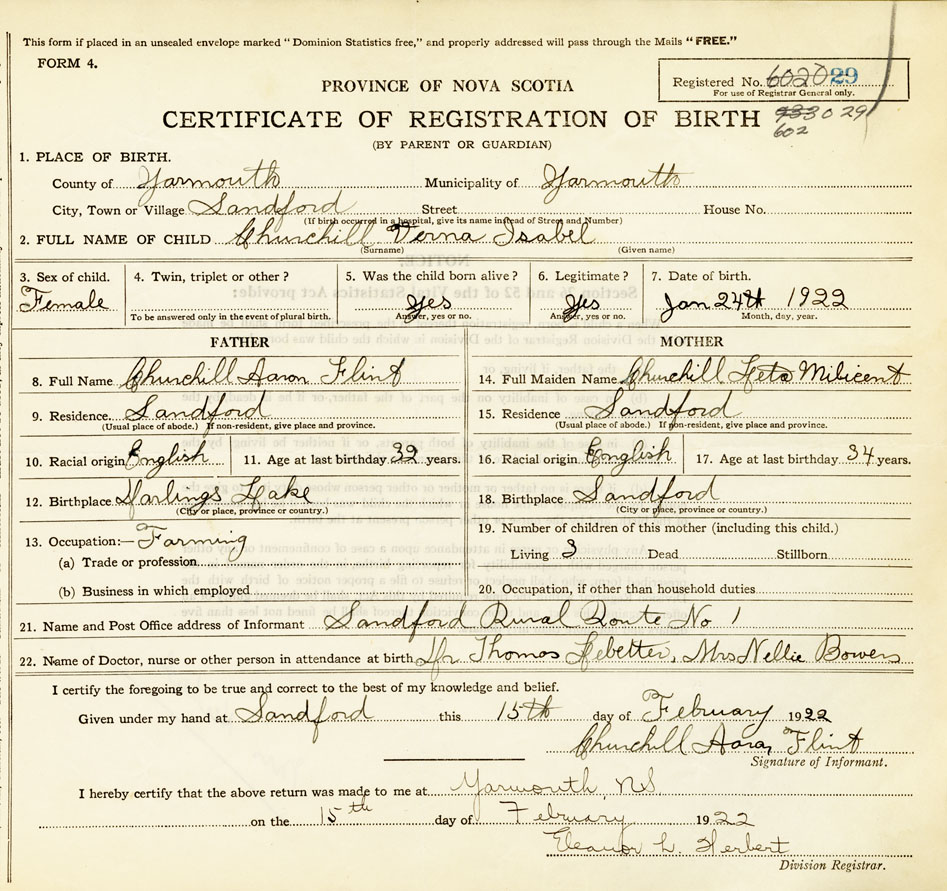 This form if placed in an unsealed envelope marked "Dominion Statistics free," and properly addressed will pass through the Mails "FREE."
FORM 4.
PROVINCE OF NOVA SCOTIA
Registered No. 602029
For use of Registrar General only.
CERTIFICATE OF REGISTRATION OF BIRTH
933029
602
(BY PARENT OR GUARDIAN)
1. PLACE OF BIRTH.
County of Yarmouth Municipality of Yarmouth
City, Town or Village Sandford Street House No.
(If birth occurred in a hospital, give its name instead of Street and Number)
2. FULL NAME OF CHILD Churchill Verna Isabel
(Surname) (Given name)
3. Sex of child. 4. Twin, triplet or other? 5. Was the child born alive? 6. Legitimate? 7. Date of birth.
Female Yes Yes Jan 24th 1922
To be answered only in the event of plural birth. Answer, yes or no. Answer, yes or no. Month, day, year.
FATHER MOTHER
8. Full Name Churchill Aaron Flint 14. Full Maiden Name Churchill Leta Milicent
9. Residence Sandford 15. Residence Sandford
(Usual place of abode.) If non-resident, give place and province. (Usual place of abode.) If non-resident, give place and province.
10. Racial origin English 11. Age at last birthday 39 years. 16. Racial origin English 17. Age at last birthday 34 years.
12. Birthplace Darlings Lake 18. Birthplace Sandford
(City or place, province or country.) (City or place, province or country.)
13. Occupation:— Farming 19. Number of children of this mother (including this child.)
(a) Trade or profession Living 3 Dead Stillborn
(b) Business in which employed 20. Occupation, if other than household duties
21. Name and Post Office address of Informant Sandford Rural Route No 1
22. Name of Doctor, nurse or other person in attendance at birth Dr. Thomas Lebetter, Mrs Nellie Bowers
I certify the foregoing to be true and correct to the best of my knowledge and belief.
Given under my hand at Sandford this 15th day of February 1922
Churchill Aaron Flint
Signature of Informant.
I hereby certify that the above return was made to me at Yarmouth, N.S.
on the 15th day of February 1922
Eleanor L. Herbert
Division Registrar.